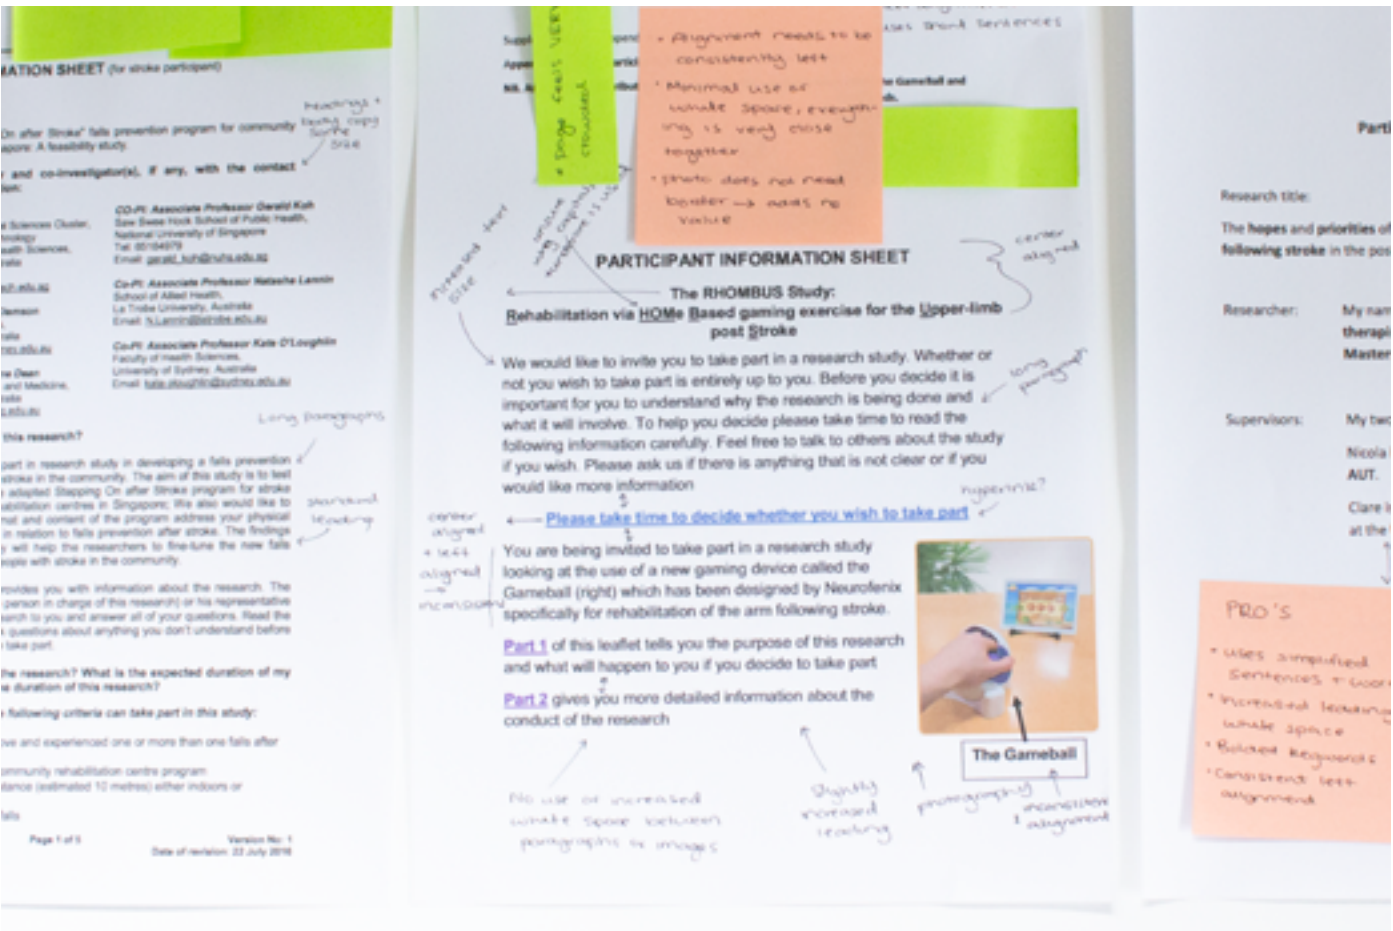 MATION SHEET (for stroke participant)
On after Stroke" falls prevention program for community
apore: A feasibility study.
r and co-investigator(s), if any, with the contact
tion:
e Sciences Cluster,
hnology
ealth Sciences,
ralia
CO-PI: Associate Professor Gerald Koh
Saw Swee Hock School of Public Health,
National University of Singapore
Email: gerald_koh@nuhs.edu.sg
Co-PI: Associate Professor Natasha Lannin
School of Allied Health,
La Trobe University, Australia
Email: N.Lannin@latrobe.edu.au
Co-PI: Associate Professor Kate O'Loughlin
Faculty of Health Sciences,
University of Sydney, Australia
Email: kate.oloughlin@sydney.edu.au
and Medicine,
headings +
body copy
same
size
Long paragraphs
standard
leading
this research?
part in research study in developing a falls prevention
stroke in the community. The aim of this study is to test
adapted Stepping On after Stroke program for stroke
abilitation centres in Singapore; We also would like to
mat and content of the program address your physical
in relation to falls prevention after stroke. The findings
y will help the researchers to fine-tune the new falls
ople with stroke in the community.
rovides you with information about the research. The
person in charge of this research) or his representative
earch to you and answer all of your questions. Read the
questions about anything you don't understand before
take part.
the research? What is the expected duration of my
e duration of this research?
following criteria can take part in this study:
ve and experienced one or more than one falls after
ommunity rehabilitation centre program
tance (estimated 10 metres) either indoors or
falls
Page 1 of 5
Version No: 1
Date of revision: 22 July 2016
• page feels VERY
crowded
• Alignment needs to be
consistently left
• Minimal use of
white space, everyth-
ing is very close
together
• photo does not need
border → adds no
value
uses short sentences
he GameBall and
increased text
size
unsure
why capitals
underline is used
center
aligned
PARTICIPANT INFORMATION SHEET
The RHOMBUS Study:
Rehabilitation via HOMe Based gaming exercise for the Upper-limb
post Stroke
We would like to invite you to take part in a research study. Whether or
not you wish to take part is entirely up to you. Before you decide it is
important for you to understand why the research is being done and
what it will involve. To help you decide please take time to read the
following information carefully. Feel free to talk to others about the study
if you wish. Please ask us if there is anything that is not clear or if you
would like more information
long
paragraph
hyperlink?
Please take time to decide whether you wish to take part
center
aligned
+ left
aligned
→
inconsistent
You are being invited to take part in a research study
looking at the use of a new gaming device called the
Gameball (right) which has been designed by Neurofenix
specifically for rehabilitation of the arm following stroke.
Part 1 of this leaflet tells you the purpose of this research
and what will happen to you if you decide to take part
Part 2 gives you more detailed information about the
conduct of the research
The Gameball
No use of increased
white space between
paragraphs or images
Slightly
increased
leading
photography
inconsistent
alignment
Parti
Research title:
The hopes and priorities of
following stroke in the pos
Researcher:
My nam
therapi
Master
Supervisors:
My two
Nicola
AUT.
Clare
at the
PRO'S
• uses simplified
sentences + wor
• Increased leading
white space
• Bolded keywords
• Consistent left
alignment